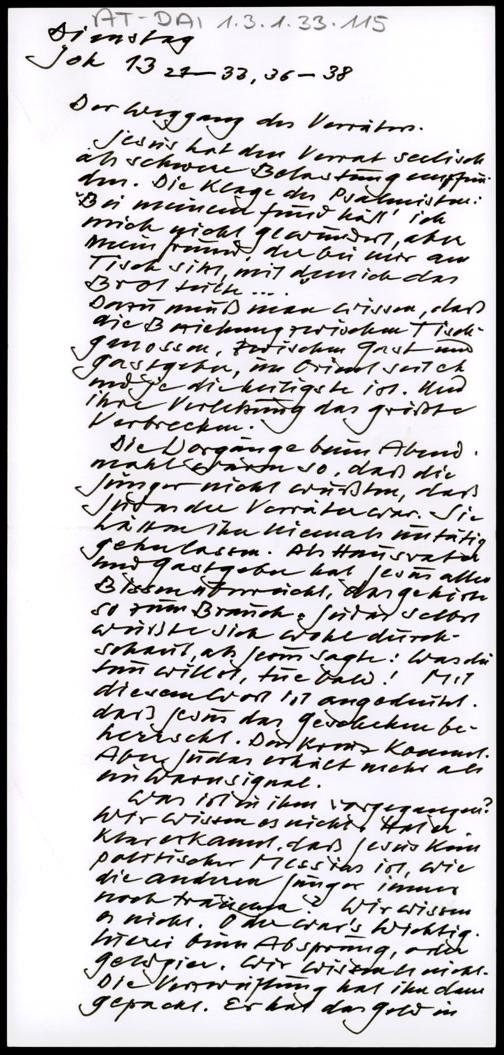 AT-DAI 1.3.1.33.115
Dienstag
Joh 13 21–33, 36–38
Der Weggang des Verräters.
Jesus hat den Verrat seelisch
als schwere Belastung empfun-
den. Die Klage des Psalmisten:
"Bei meinem Feind hätt' ich
mich nicht gewundert, aber
mein Freund, der bei mir am
Tisch sitzt, mit dem ich das
Brot teilte ...
Dazu muß man wissen, daß
die Beziehung zwischen Tisch-
genossen, zwischen Gast und
Gastgeber, im Orient seit eh
und je die heiligste ist. Und
ihre Verletzung das größte
Verbrechen.
Die Vorgänge beim Abend-
mahl waren so, daß die
Jünger nicht wußten, daß
Judas der Verräter war. Sie
hätten ihn niemals untätig
gehn lassen. Als Hausvater
und Gastgeber hat Jesus allen
Bissen überreicht, das gehörte
so zum Brauch. Judas selbst
wußte sich wohl durch-
schaut, als Jesus sagte: Was du
tun willst, tue bald! Mit
diesem Wort ist angedeutet,
daß Jesus das Geschehen be-
herrscht. Das Kreuz kommt.
Aber Judas erhält mehr als
ein Warnsignal.
Was ist in ihm vorgegangen?
Wir wissen es nicht. Hat er
klar erkannt, daß Jesus kein
politischer Messias ist, wie
die anderen Jünger immer
noch träumen? Wir wissen
es nicht. Oder war's wichtig.
beim Absprung, oder
Geldgier. Wir wissen's nicht.
Die Verzweiflung hat ihn dann
gepackt. Er hat das Geld in